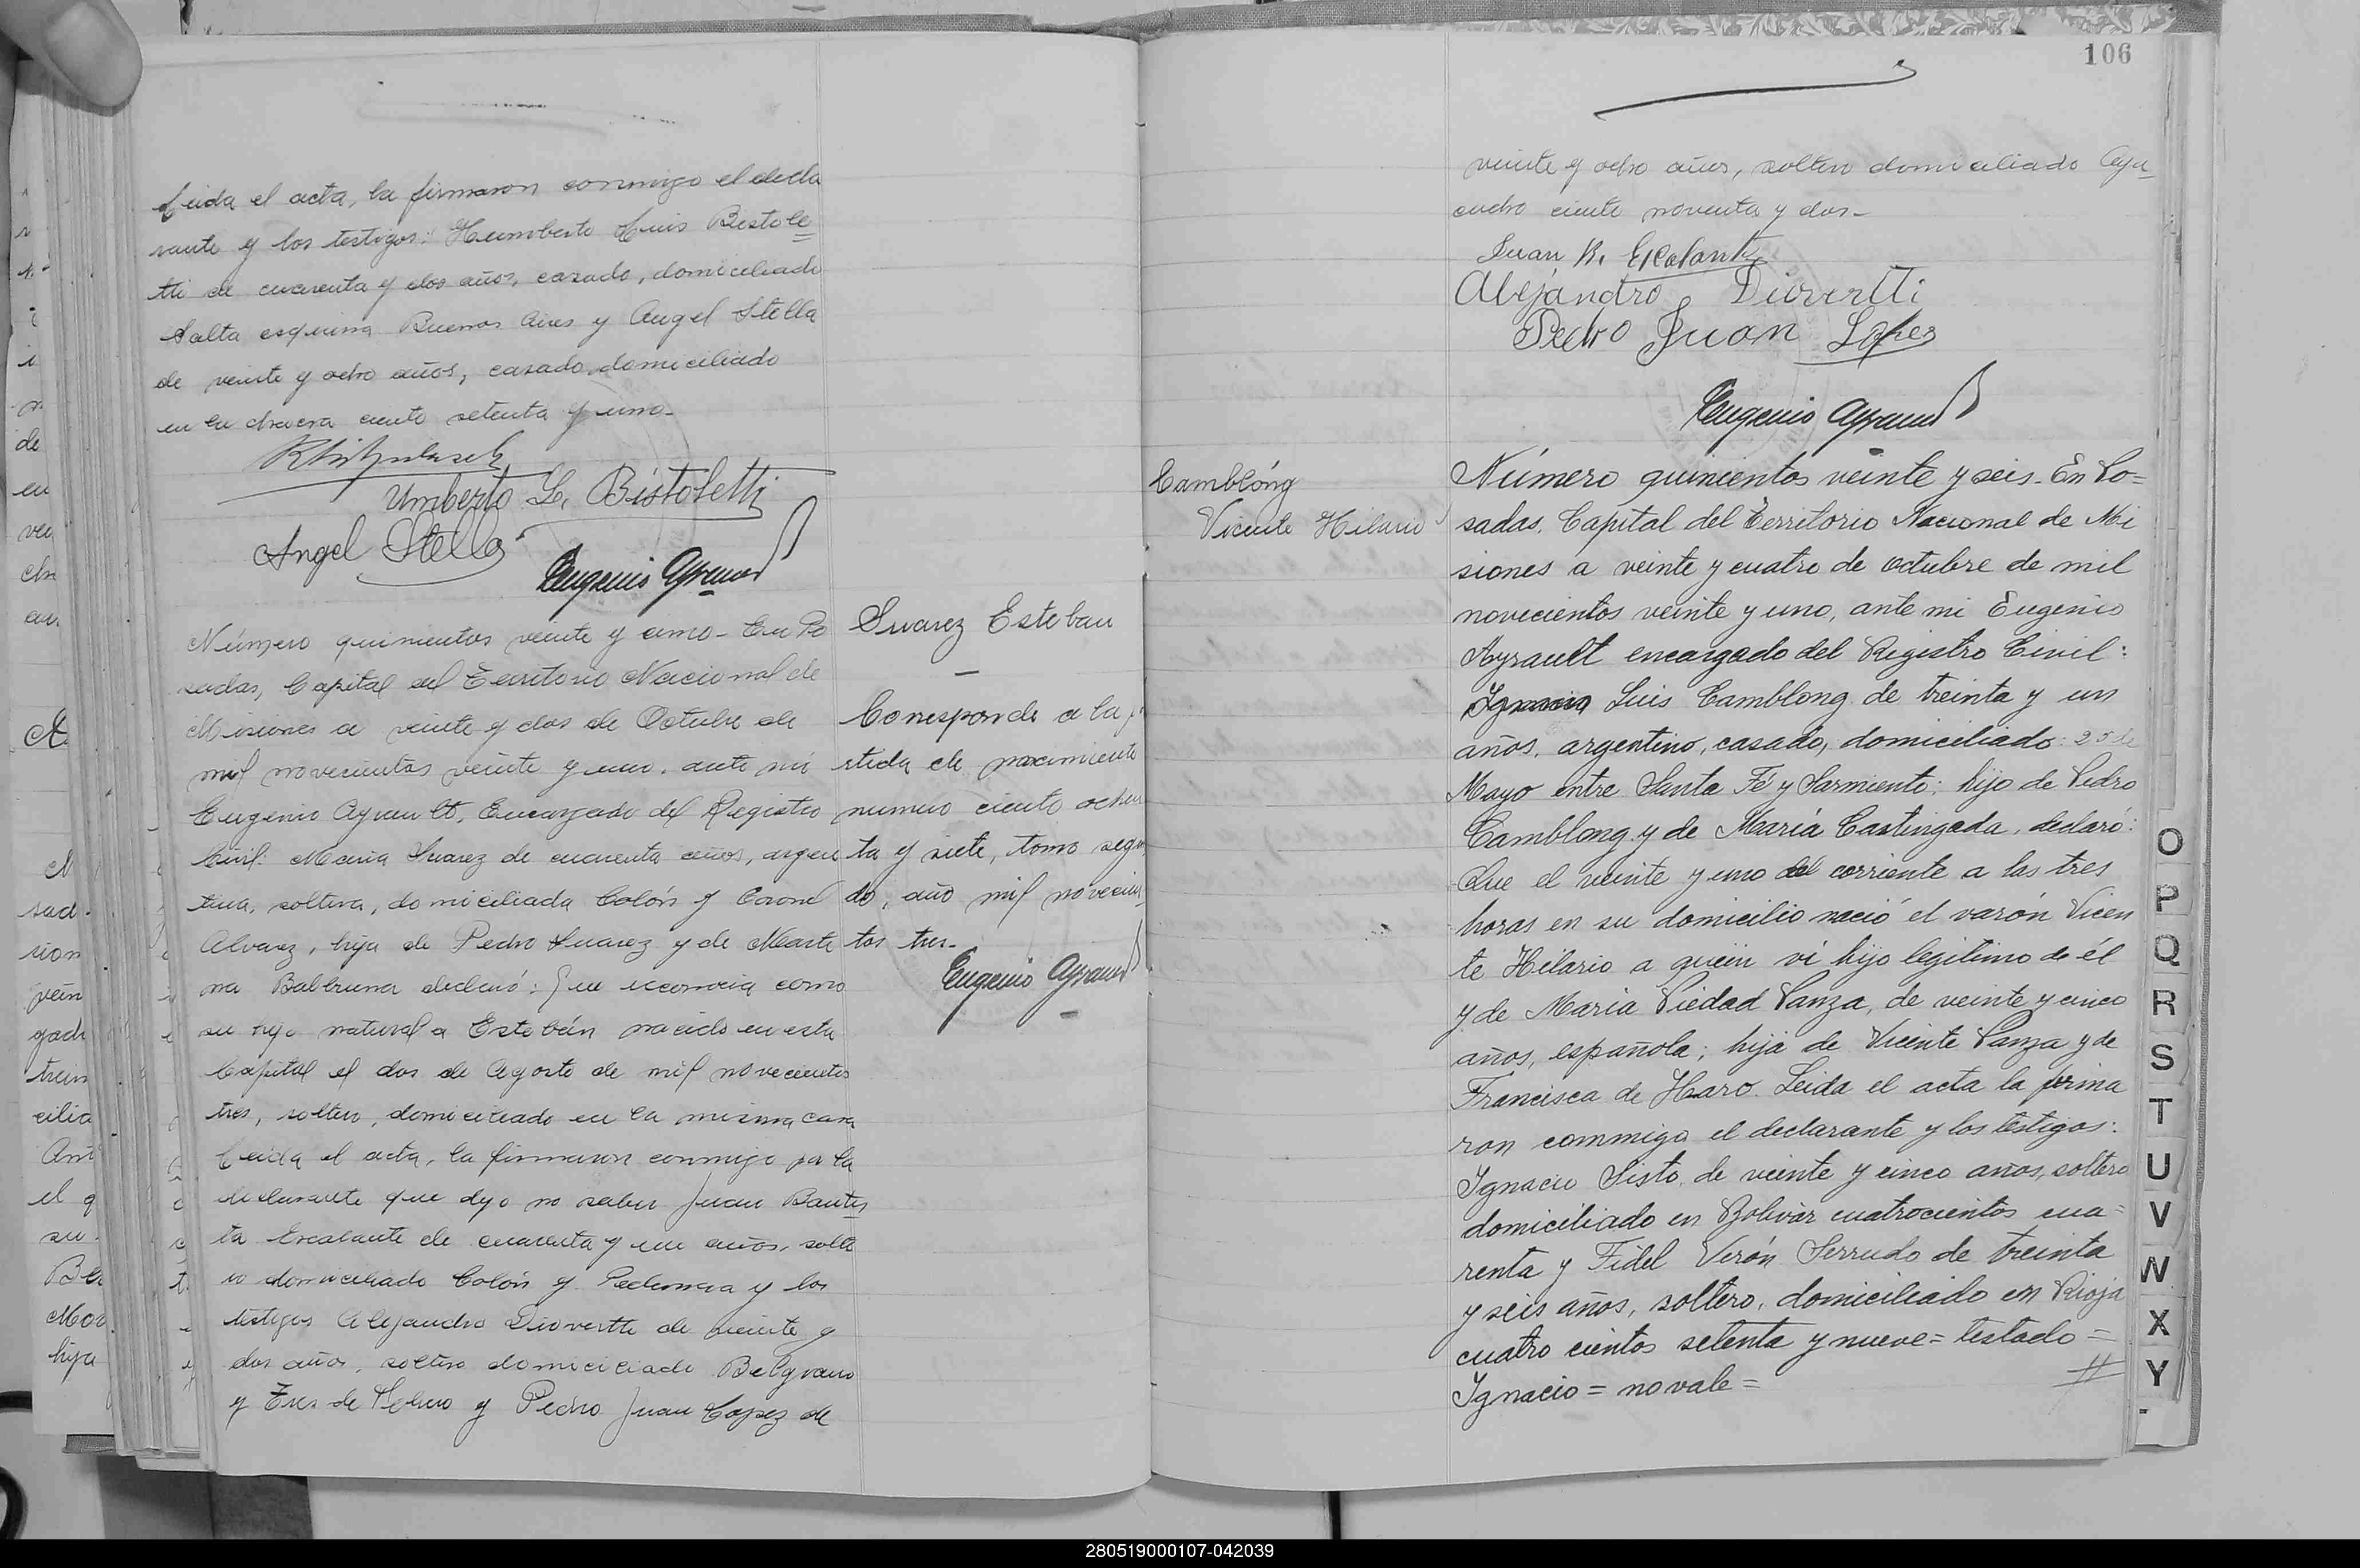 Leida el acta, la firmaron conmigo el decla
rante y los testigos: Humberto Luis Bistole
tti de cuarenta y dos años, casado, domiciliado
Salta esquina Buenos Aires y Angel Stella
de veinte y ocho años, casado, domiciliado
en la chacra ciento setenta y uno-
Umberto L. Bistoletti
Angel Stella
Eugenio Ayrault
Número quinientos veinte y cinco- En Po
sadas, Capital del Territorio Nacional de
Misiones a veinte y dos de Octubre de
mil novecientos veinte y uno, ante mi
Eugenio Ayrault, Encargado del Registro
Civil: Maria Suarez de cuarenta años, argen
tina, soltera, domiciliada Colón y Coronel
Alvarez, hija de Pedro Suarez y de Marti
na declaró: Que reconocia como
su hijo natural a Estebán nacido en esta
Capital el dos de Agosto de mil novecientos
tres, soltero, domiciliado en la misma casa
Leida el acta, la firmaron conmigo por la
declarante que dijo no saber Juan Bautis
ta Escalante de cuarenta y un años, solte
ro domiciliado Colón y y los
testigos Alejandro Diovertti de veinte y
dos años, soltero domiciliado Belgrano
y Tres de Febrero y Pedro Juan Lopez de
Suarez Esteban
Corresponde a la p
rtida de nacimiento
numero ciento ochen
ta y siete, tomo segun
do, año mil novecien
tos tres-
Eugenio Ayrault
106
veinte y ocho años, soltero domiciliado Aya
cucho ciento noventa y dos-
Juan B. Escalante
Alejandro Diovertti
Pedro Juan Lopez
Eugenio Ayrault
Camblóng
Vicente Hilario
Número quinientos veinte y seis- En Po=
sadas, Capital del Territorio Nacional de Mi
siones a veinte y cuatro de octubre de mil
novecientos veinte y uno, ante mi Eugenio
Ayrault encargado del Registro Civil:
Ignacio Luis Camblong de treinta y un
años, argentino, casado, domiciliado: 25 de
Mayo entre Santa Fé y Sarmiento; hijo de Pedro
Camblong y de María Castingada, declaró:
Que el veinte y uno del corriente a las tres
horas en su domicilio nació el varón Vicen
te Hilario a quien vi hijo legitimo de él
y de Maria Piedad Panza, de veinte y cinco
años, española; hija de Vicente Panza y de
Francisca de Haro. Leida el acta la firma
ron commigo el declarante y los testigos:
Ignacio Sisto, de veinte y cinco años, soltero
domiciliado en Bolivar cuatrocientos cua=
renta y Fidel Verón Serrudo de treinta
y seis años, soltero, domiciliado en Rioja
cuatro cientos setenta y nueve= testado=
Ignacio= no vale=
O
P
Q
R
S
T
U
V
W
X
Y
280519000107-042039